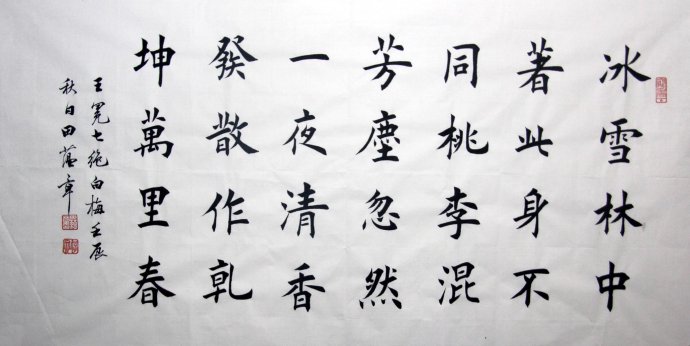 冰雪林中
著此身不
同桃李混
芳塵忽然
一夜清香
發散作乹
坤萬里春
王冕七絶白梅壬辰
秋日田蘊章